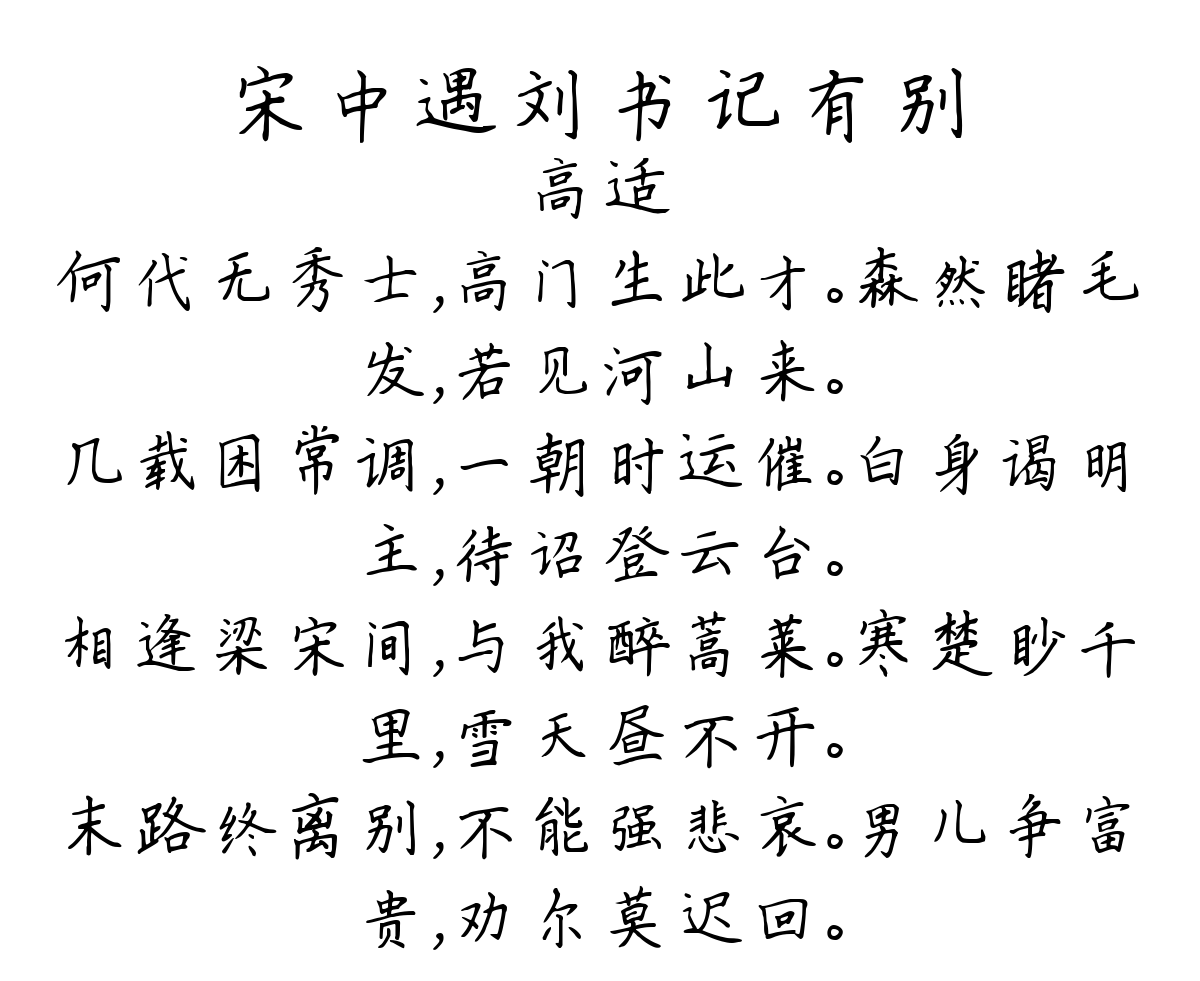 宋中遇刘书记有别
高适
何代无秀士,高门生此才。森然睹毛
发,若见河山来。
几载困常调,一朝时运催。白身谒明
主,待诏登云台。
相逢梁宋间,与我醉蒿莱。寒楚眇千
里,雪天昼不开。
末路终离别,不能强悲哀。男儿争富
贵,劝尔莫迟回。